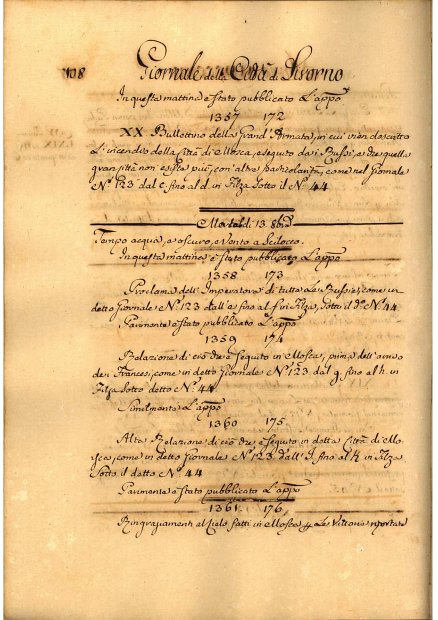 108
Giornale della Città di Livorno
In questa mattina è stato pubblicato l'appo
1357 172
XX Bullettino della Grand'Armata, in cui vien descritto
l'incendio della Città di Mosca, eseguito dai Russi, e che quella
gran città non esiste più, con altre particolarità, come nel Giornale
N.º 123 dal c. fino al d. in Filza sotto il N.º 44
Martedì 13. 8bre
Tempo acqua, e oscuro, e vento a Scilocco.
In questa mattina è stato pubblicato l'appo
1358 173
Proclama dell'Imperatore di tutte le Russie, come in
detto Giornale N.º 123 dall'e fino al f. in Filza, sotto il d.º N.º 44
Parimente è stato pubblicato l'appo
1359 174
Relazione di ciò che è seguito in Mosca, prima dell'arrivo
dei Francesi, come in detto Giornale N.º 123 dal g. fino al h. in
Filza sotto detto N.º 44
Similmente l'appo
1360 175
Altra Relazione di ciò che è seguito in detta Città di Mo-
sca, come in detto Giornale N.º 123 dall'I. fino al K in Filza
sotto il detto N.º 44
Parimente è stato pubblicato l'appo
1361 176
Ringraziamenti al Cielo fatti in Mosca p le Vittorie riportate